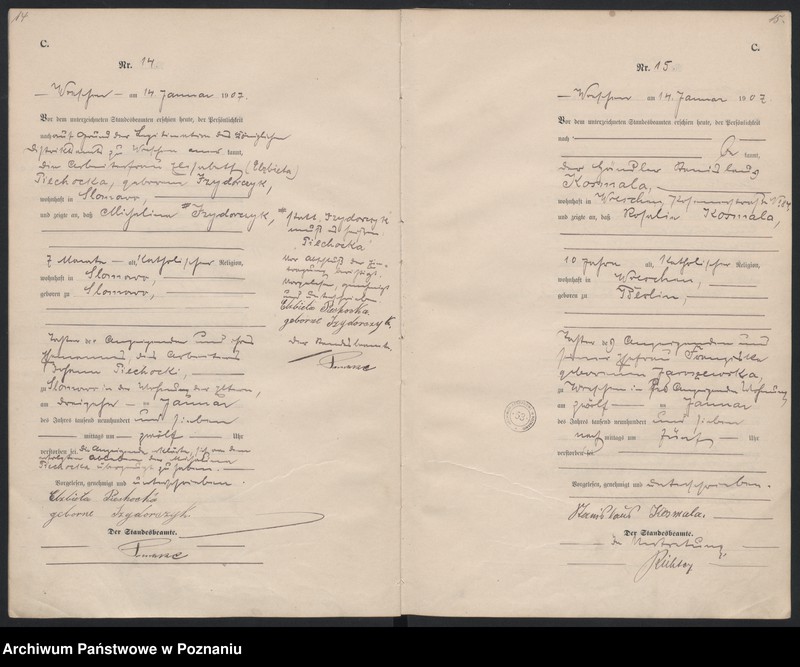 14
C.
Nr. 14
Wreschen am 14 Januar 1907.
Vor dem unterzeichneten Standesbeamten erschien heute, der Persönlichkeit
nach auf Grund der Legitimation des Königlichen
Distriktsamts zu Wreschen kannt,
die Arbeiterfrau (Elzbieta)
Piechocka, geborene Izydorczyk,
wohnhaft in Slomowo,
und zeigte an, daß Michalina Izydorczyk,
7 Monate alt, Katholischer Religion,
wohnhaft in Slomowo,
geboren zu Slomowo,
Tochter der Anzeigenden und ihres
Ehemannes, des Arbeiters
Johann Piechocki,
zu Slomowo in der Wohnung der Eltern,
am dreizehn Januar
des Jahres tausend neunhundert und sieben
mittags um zwölf Uhr
verstorben sei. Die Anzeigende erklärte, sich von dem
erfolgten Ableben der Michalina
Piechocka überzeugt zu haben.
Vorgelesen, genehmigt und unterschrieben.
Elzbieta Piechocka
geborne Izydorczyk
Der Standesbeamte.
statt Izydorczyk
muß es heißen
Piechocka
Vorgelesen, genehmigt
und unterschrieben
Elzbieta Piechocka
geborene Izydorczyk
Der Standesbeamte.
15.
C.
Nr. 15
Wreschen am 14. Januar 1907
Vor dem unterzeichneten Standesbeamten erschien heute, der Persönlichkeit
nach
kannt,
der Händler Stanislaus
Kosmala,
wohnhaft in Wreschen,
und zeigte an, daß Rosalia Kosmala,
10 Jahre alt, Katholischer Religion,
wohnhaft in Wreschen,
geboren zu Berlin,
Tochter des Anzeigenden und
seiner Ehefrau Franziska
geborenen
zu Wreschen in des Anzeigenden Wohnung
am zwölf Januar
des Jahres tausend neunhundert und sieben
nachmittags um fünf Uhr
verstorben sei.
Vorgelesen, genehmigt und unterschrieben.
Stanislaus Kosmala.
Der Standesbeamte.
In Vertretung
Archiwum Państwowe w Poznaniu